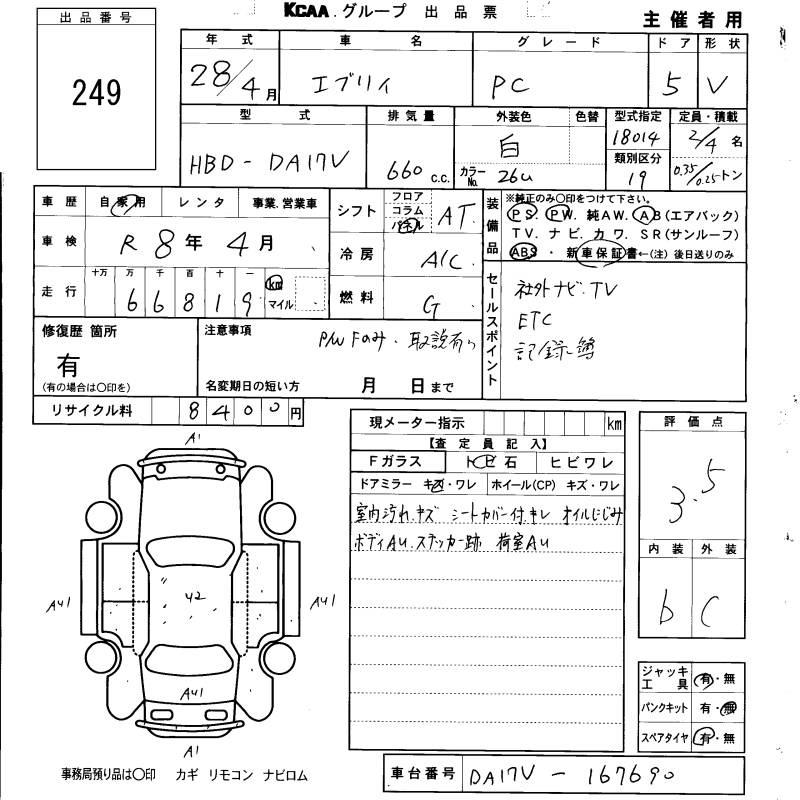 出品番号
249
KCAA.グループ 出品票
主催者用
年式 車名 グレード ドア 形状
28/4月 エブリイ PC 5 V
型式 排気量 外装色 色替 型式指定 定員・積載
HBD-DA17V 660 c.c. 白 18014 2/4名
カラーNo. 26U 類別区分 19 0.35/0.25トン
車歴 自家用 レンタ 事業.営業車
車検 R 8年 4月
走行 十万 万 千 百 十 一
66819 km マイル
シフト フロア コラム パネル AT
冷房 A/C
燃料 G
装備品 ※純正のみ○印をつけて下さい。
PS. PW. 純AW. AB(エアバック)
TV. ナビ. カワ. SR(サンルーフ)
ABS ・ 新車保証書←(注)後日送りのみ
セールスポイント
社外ナビ.TV
ETC
記録簿
修復歴 箇所
有
(有の場合は○印を)
注意事項
P/W Fのみ・取説有り
名変期日の短い方 月 日まで
リサイクル料 8400円
現メーター指示 km
【査定員記入】
Fガラス トビ石 ヒビワレ
ドアミラー キズ・ワレ ホイール(CP) キズ・ワレ
室内汚れ.キズ シートカバー付.キレ オイルにじみ
ボディAU.ステッカー跡 荷室AU
評価点
3.5
内装 外装
b C
ジャッキ工具 有・無
パンクキット 有・無
スペアタイヤ 有・無
A1
AU1
U2
AU1
AU1
A1
事務局預り品は○印 カギ リモコン ナビロム
車台番号 DA17V-167690